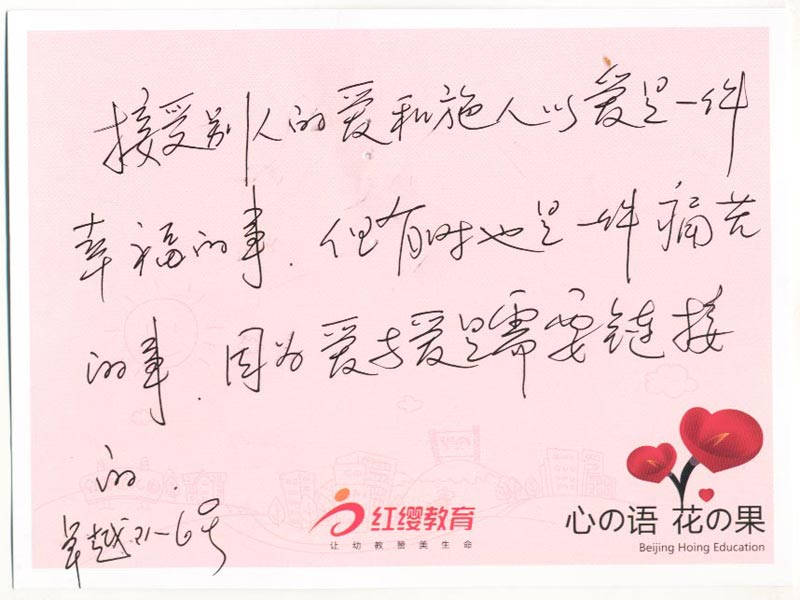 接受别人的爱和施人以爱是一件
幸福的事.但有时也是一件痛苦
的事.因为爱与爱是需要链接
的.
卓越21-6号
红缨教育
让幼教赞美生命
心の语 花の果
Beijing Hoing Education